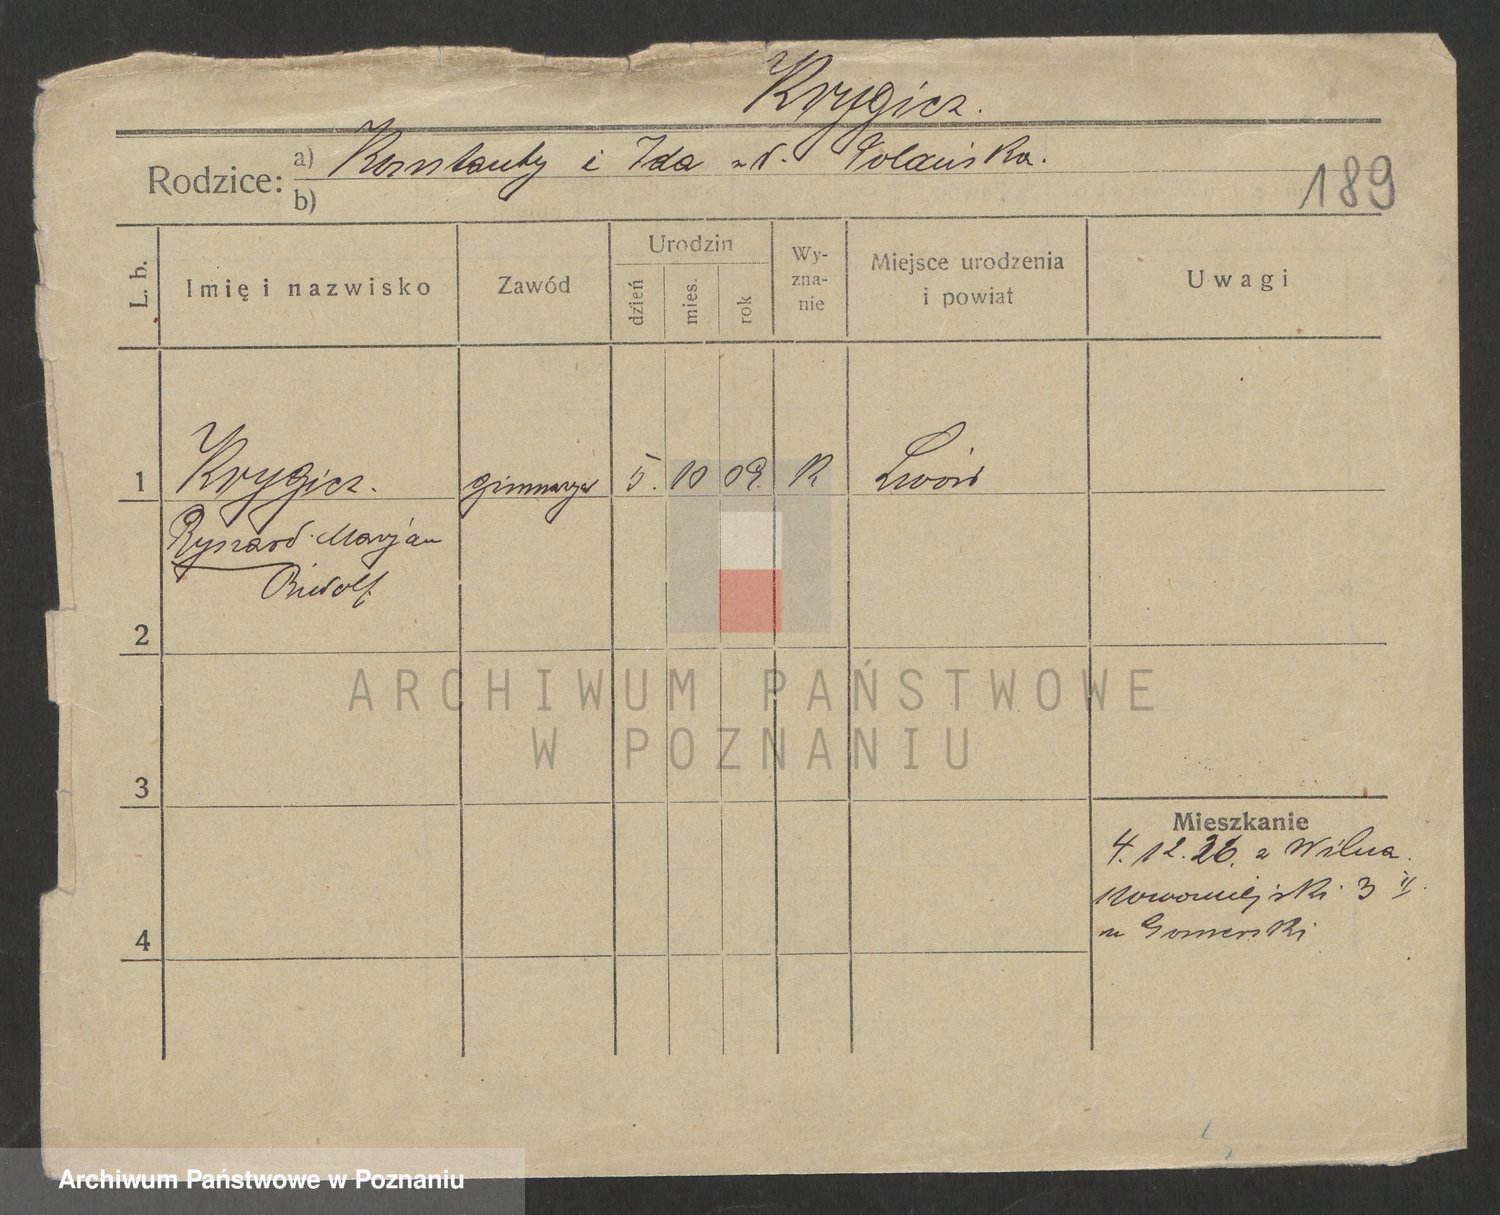 Krygicz.
Rodzice: a) Konstanty i Ida z d. Polańska.
b)
189
L. b.
Imię i nazwisko
Zawód
Urodzin
dzień
mies.
rok
Wy-
zna-
nie
Miejsce urodzenia
i powiat
Uwagi
1 Krygicz. 5. 10 09. R Lwów
Ryszard Marjan
Rudolf
2
3
4
Mieszkanie
4.12.26. z Wilna.
3 II.
ARCHIWUM PAŃSTWOWE
W POZNANIU
Archiwum Państwowe w Poznaniu